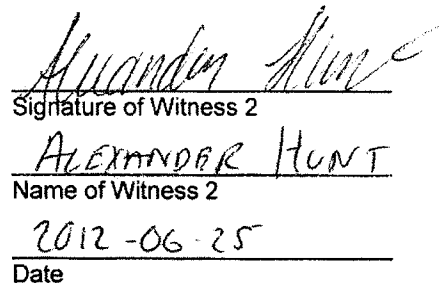 Alexander Hunt
Signature of Witness 2
ALEXANDER HUNT
Name of Witness 2
2012-06-25
Date